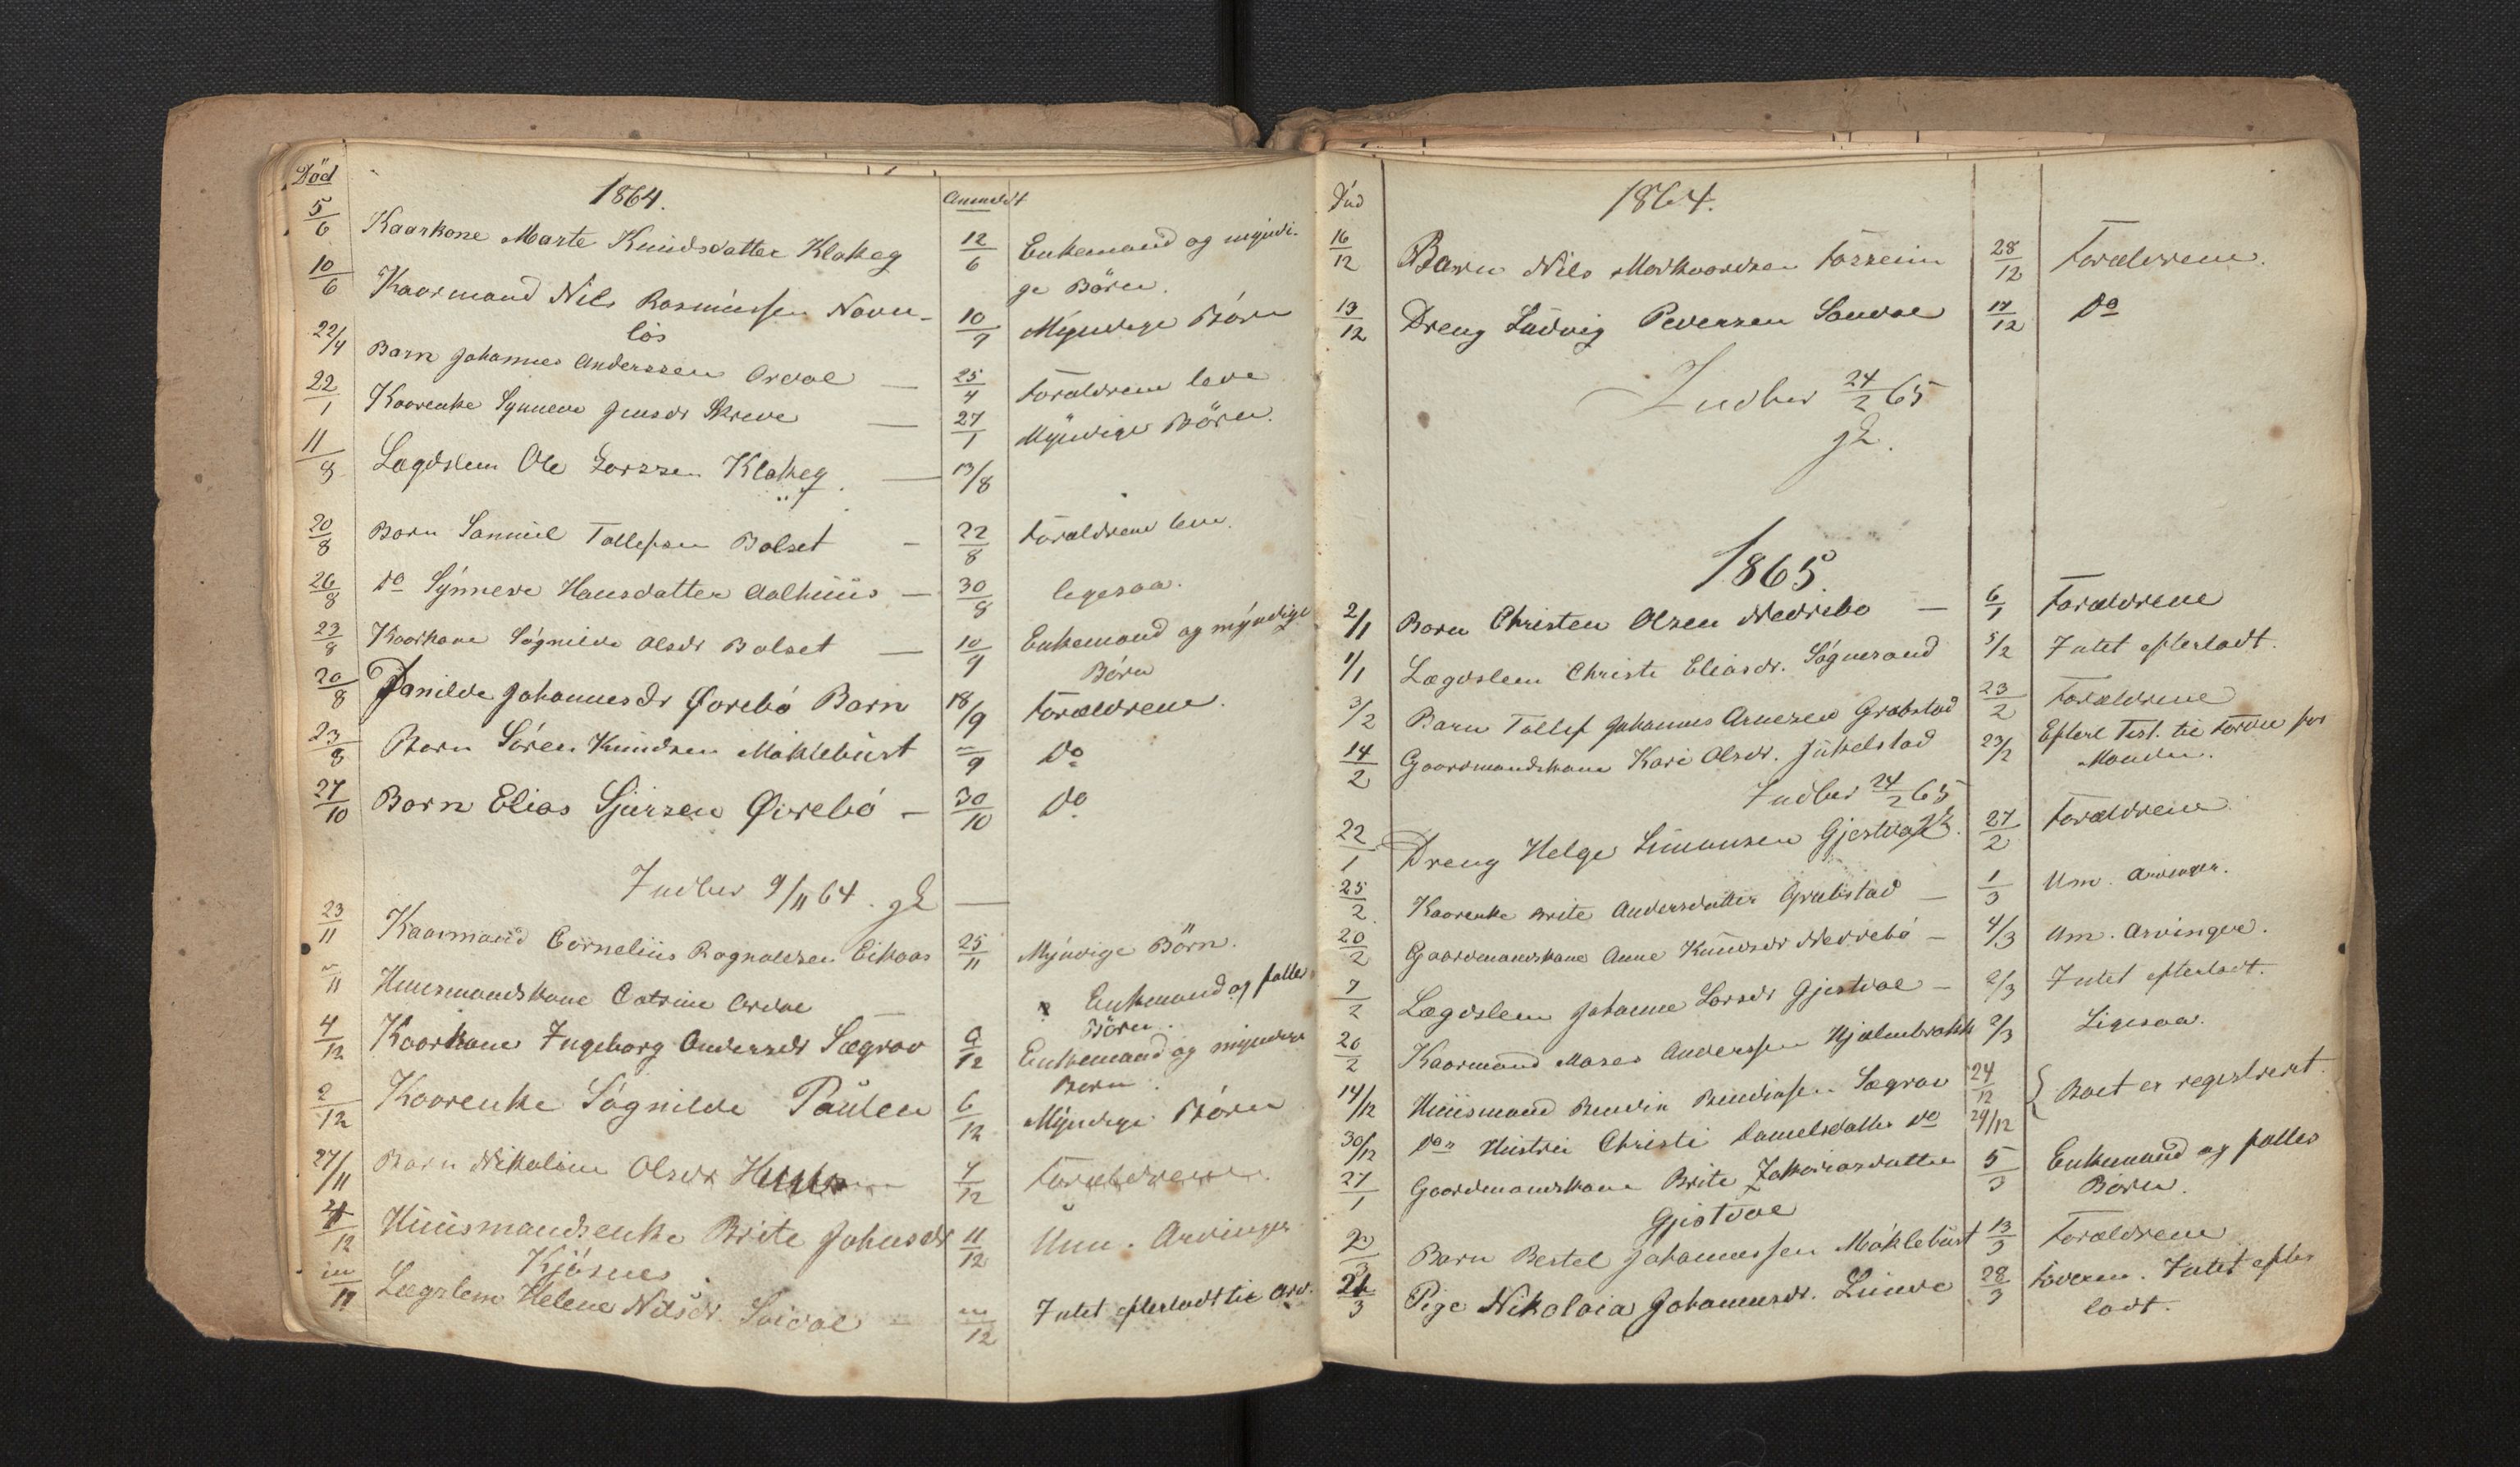 Död
1864.
Anmeldt
5/6 Kaarkone Marte Knudsdatter Klakeg 12/6 Enkemand og myndi-
ge Börn.
10/6 Kaarmand Nils Rasmussen Navn- 10/7 Myndige Börn
lös
22/4 Barn Johannes Anderssen Ordal — 25/4 Foraldrene leve
22/1 Kaarenke Synneve Jensdr Skreve — 27/1 Myndige Börn.
11/8 Lægdslem Ole Larssen Klakeg. — 13/8
20/8 Barn Samuel Tollefsen Bolset — 22/8 Foraldrene leve.
26/8 do Synneve Hansdatter Aalhuus — 30/8 ligesaa.
23/8 Kaarkone Sögnilde Olsdr Bolset — 10/9 Enkemand og myndige
Börn
20/8 Janilde Johannesdr Övrebö Barn 18/9 Forældrene.
23/8 Barn Sören Knudsen Möklebust "/9 do
27/10 Barn Elias Sjursen Övrebö — 30/10 do
Indber 9/11 64. —
23/11 Kaarmand Cornelius Ragnaldsen Eikaas 25/11 Myndige Börn.
"/11 Huusmandskone Catrine Ordal " Enkemand og falles
Börn.
4/12 Kaarkone Ingeborg Andersdr Sægrov 9/12 Enkemand og myndige
Börn.
2/12 Kaarenke Sögnilde Paulen 6/12 Myndige Börn
27/11 Barn Nikoline Olsdr 7/12 Forældrene.
/12 Huusmandsenke Brite Johnsdr 11/12 Um. Arvinger
Kjösnes
/11 Lægslem Helene Nilsdr. Svidal — "/12 Intet efterladt til Arv.
Död
1864.
16/12 Barn Nils Markvardsen Fosseim 28/12 Forældrene.
13/12 Dreng Ludvig Pedersen Sandal 17/12 do
Indber 24/2 65
1865.
2/1 Barn Christen Olsen Nedrebö — 6/1 Forældrene
1/1 Lægdslem Christi Eliasdr. Sögnesand 5/2 Intet efterladt.
3/2 Barn Tollef Johannes Arnesen Grobstad 23/2 Forældrene
14/2 Gaardmandskone Kari Olsdr. Jukelstad 23/2 Efterl Test. til Fordel for
Manden.
Indber 24/2 65
22/1 Dreng Helge Simonsen Gjesdal. 27/2 Forældrene.
25/2 Kaarenke Brite Andersdatter Grobstad — 1/3 Um. Arvinger.
20/2 Gaardmandskone Anne Knudsdr Nedrebö — 4/3 Um. Arvinger.
7/2 Lægdslem Johanne Larsdr Gjesdal — 2/3 Intet efterladt.
20/2 Kaarmand Moses Anderssen Hjelmbrekke 2/3 Ligesaa.
14/12 Huusmand Bendix Bendixsen Sægrov 24/12 { Boet er registreret.
30/12 do" Hustru Christi Danielsdatter do 29/12
27/1 Gaardmandskone Brite Zakariasdatter 5/3 Enkemand og falles
Börn.
Gjesdal
2/3 Barn Bertel Johannessen Möklebust 13/3 Forældrene
21/3 Pige Nikolaia Johannesdr. Lunde 28/3 Foreldr. Intet efter
ladt.